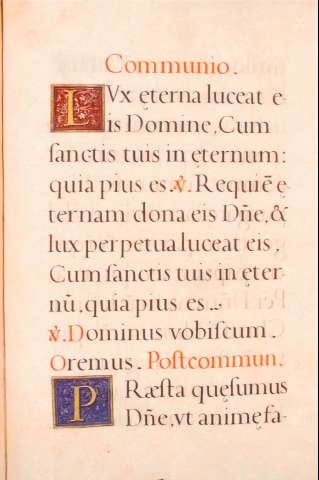 Communio.
LVx ęterna luceat e-
is Domine, Cum
ſanctis tuis in ęternum:
quia pius es. ℣. Requiē ę-
ternam dona eis Dn̄e, &
lux perpetua luceat eis.
Cum ſanctis tuis in ęter-
nū, quia pius es..
℣. Dominus vobiſcum.
Oremus. Poſtcommun.
PRæſta quęſumus
Dn̄e, vt animę fa-